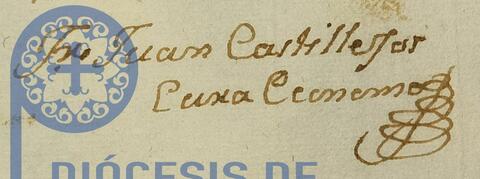 Fr. Juan Castillejos
Cura Economo
DIÓCESIS DE